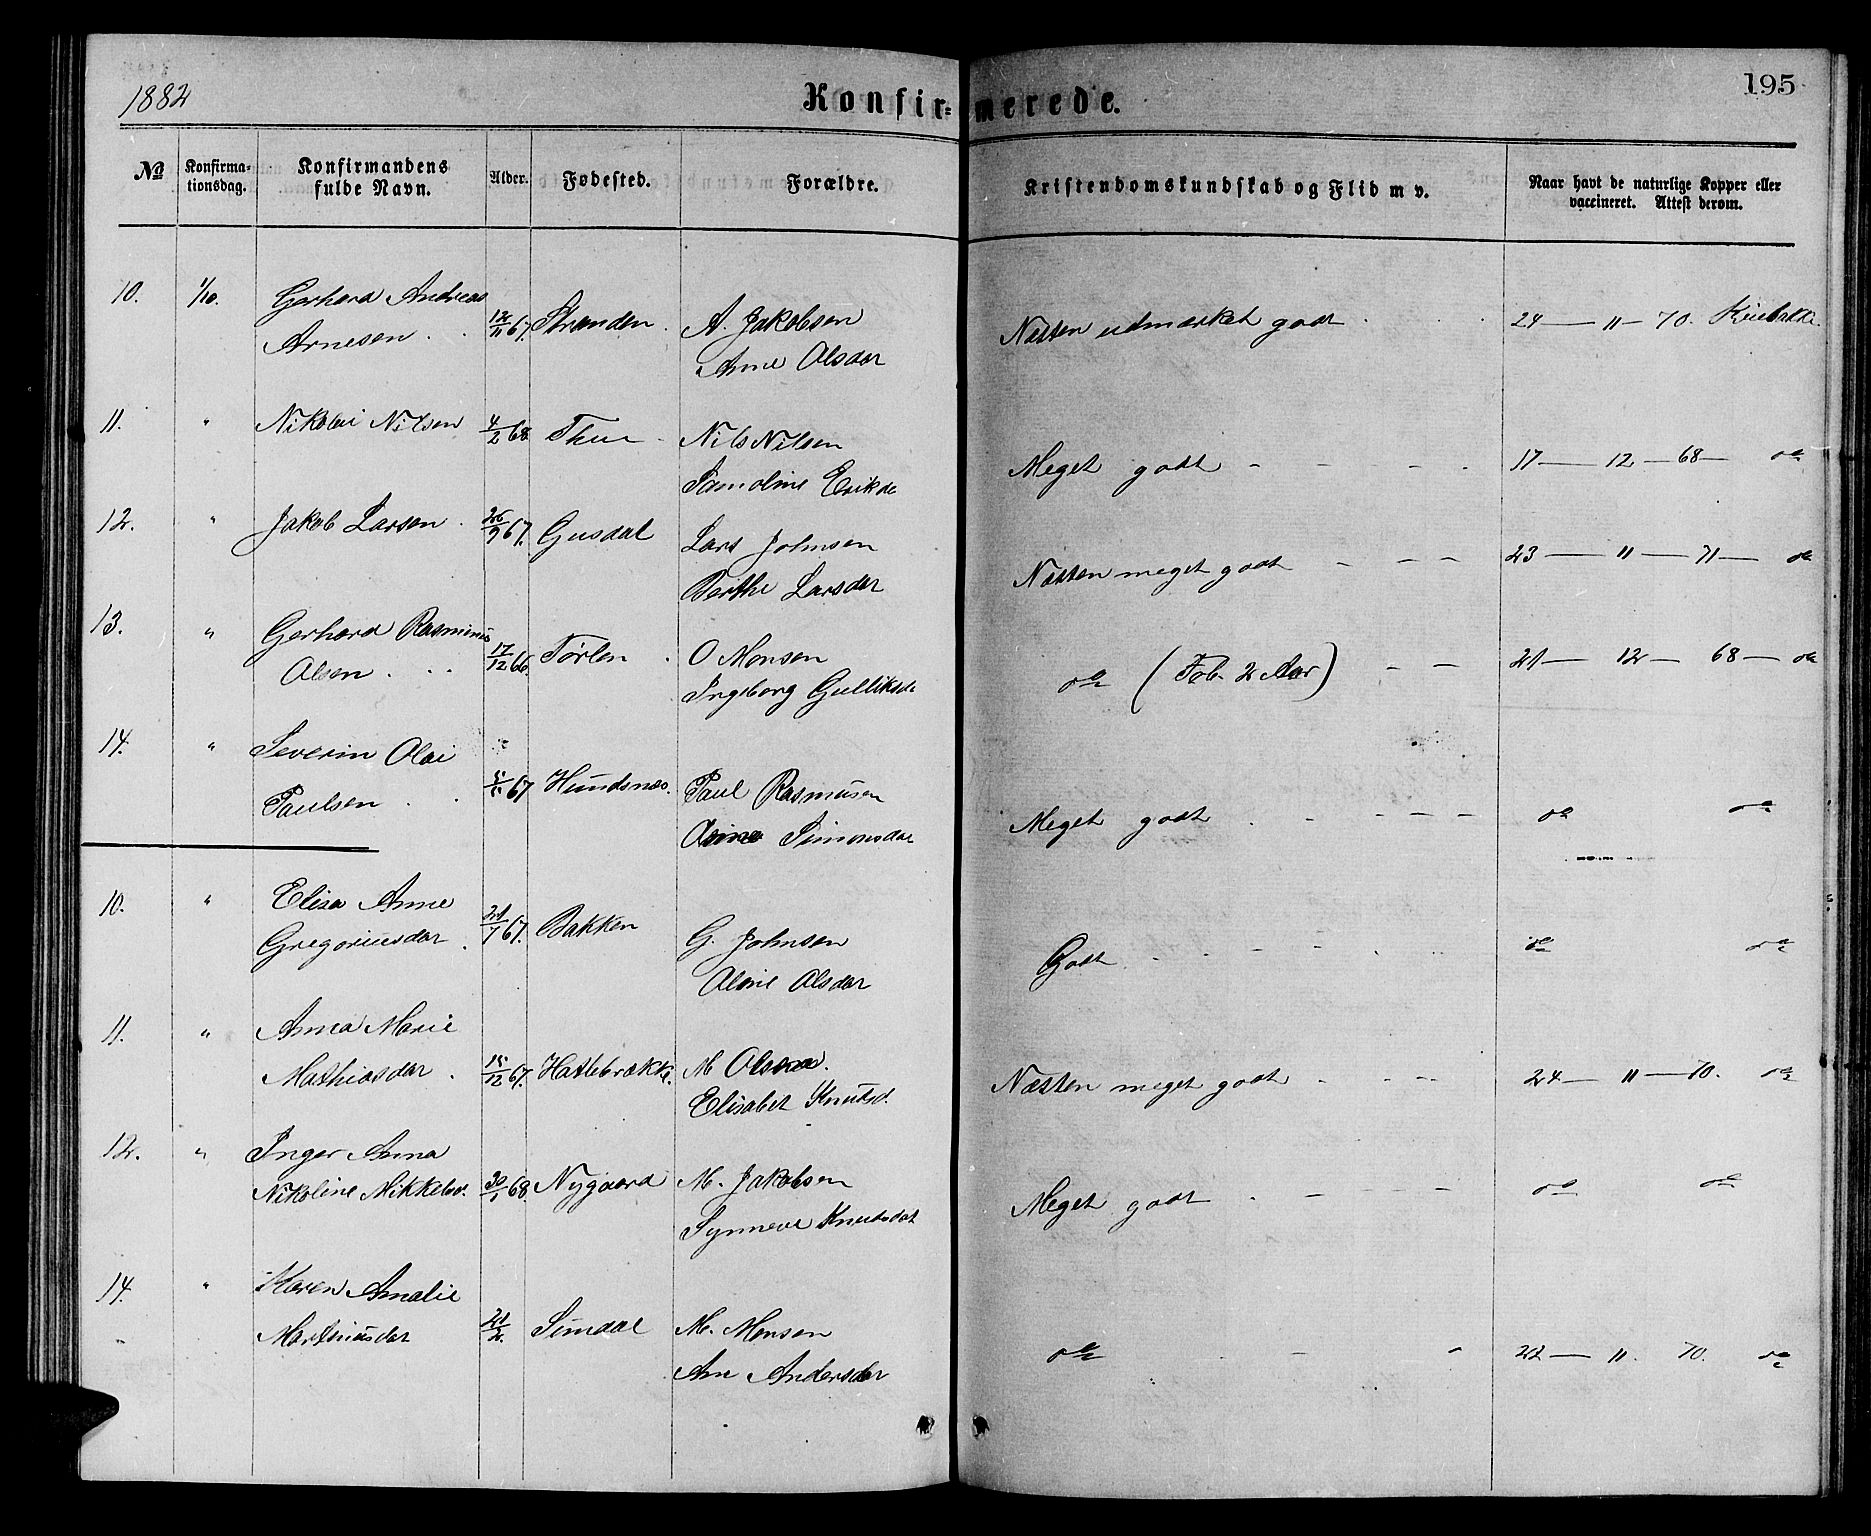 1882
Konfir=merede.
195
No
Konfirma-
tionsdag.
Konfirmandens
fulde Navn.
Alder.
Fødested.
Forældre.
Kristendomskundskab og Flid m v.
Naar havt de naturlige Kopper eller
vaccineret. Attest derom.
10. 1/10. Gerhard Andreas
Arnesen 12/11 67. Stranden. A. Jakobsen Næsten udmærket godt 24 — 11 — 70.
Anne Olsdar
11. " Nikolai Nilsen 4/2 68 Thue Nils Nilsen Meget godt 17 — 12 — 68 — do
Samoline Eriksd
12. " Jakob Larsen 26/9 67. Gusdal Lars Johnsen Næsten meget godt 23 — 11 — 71 — do
Berthe Larsdar
13. " Gerhard Rasmus
Olsen 17/12 66 Tørlen O Monsen do (Fob. 2 Aar) 21 — 12 — 68 — do
Ingeborg Gulliksd
14. " Severin Olai
Paulsen 67 Hundsnes. Paul Rasmusen Meget godt do do
Simonsdar
10. " Elisa Anne
Gregoriusdar 21/7 67. Bakken G. Johnsen Godt do do
Oline Olsdar
11. " Anna Marie
Mathiasdar 15/12 67. Hatlebrække. M Olsen. Næsten meget godt 24 — 11 — 70. do
Elisabet Knutsd.
12. " Inger Anna
Nikoline Mikkelsd. 30/1 68. Nygaard M. Jakobsen Meget godt do do
Synneve Knutsdat
14. " Karen Amalie
Martiniusdar 21/2. Simdal M. Monsen do 22 — 11. 70. do
An Andersdar